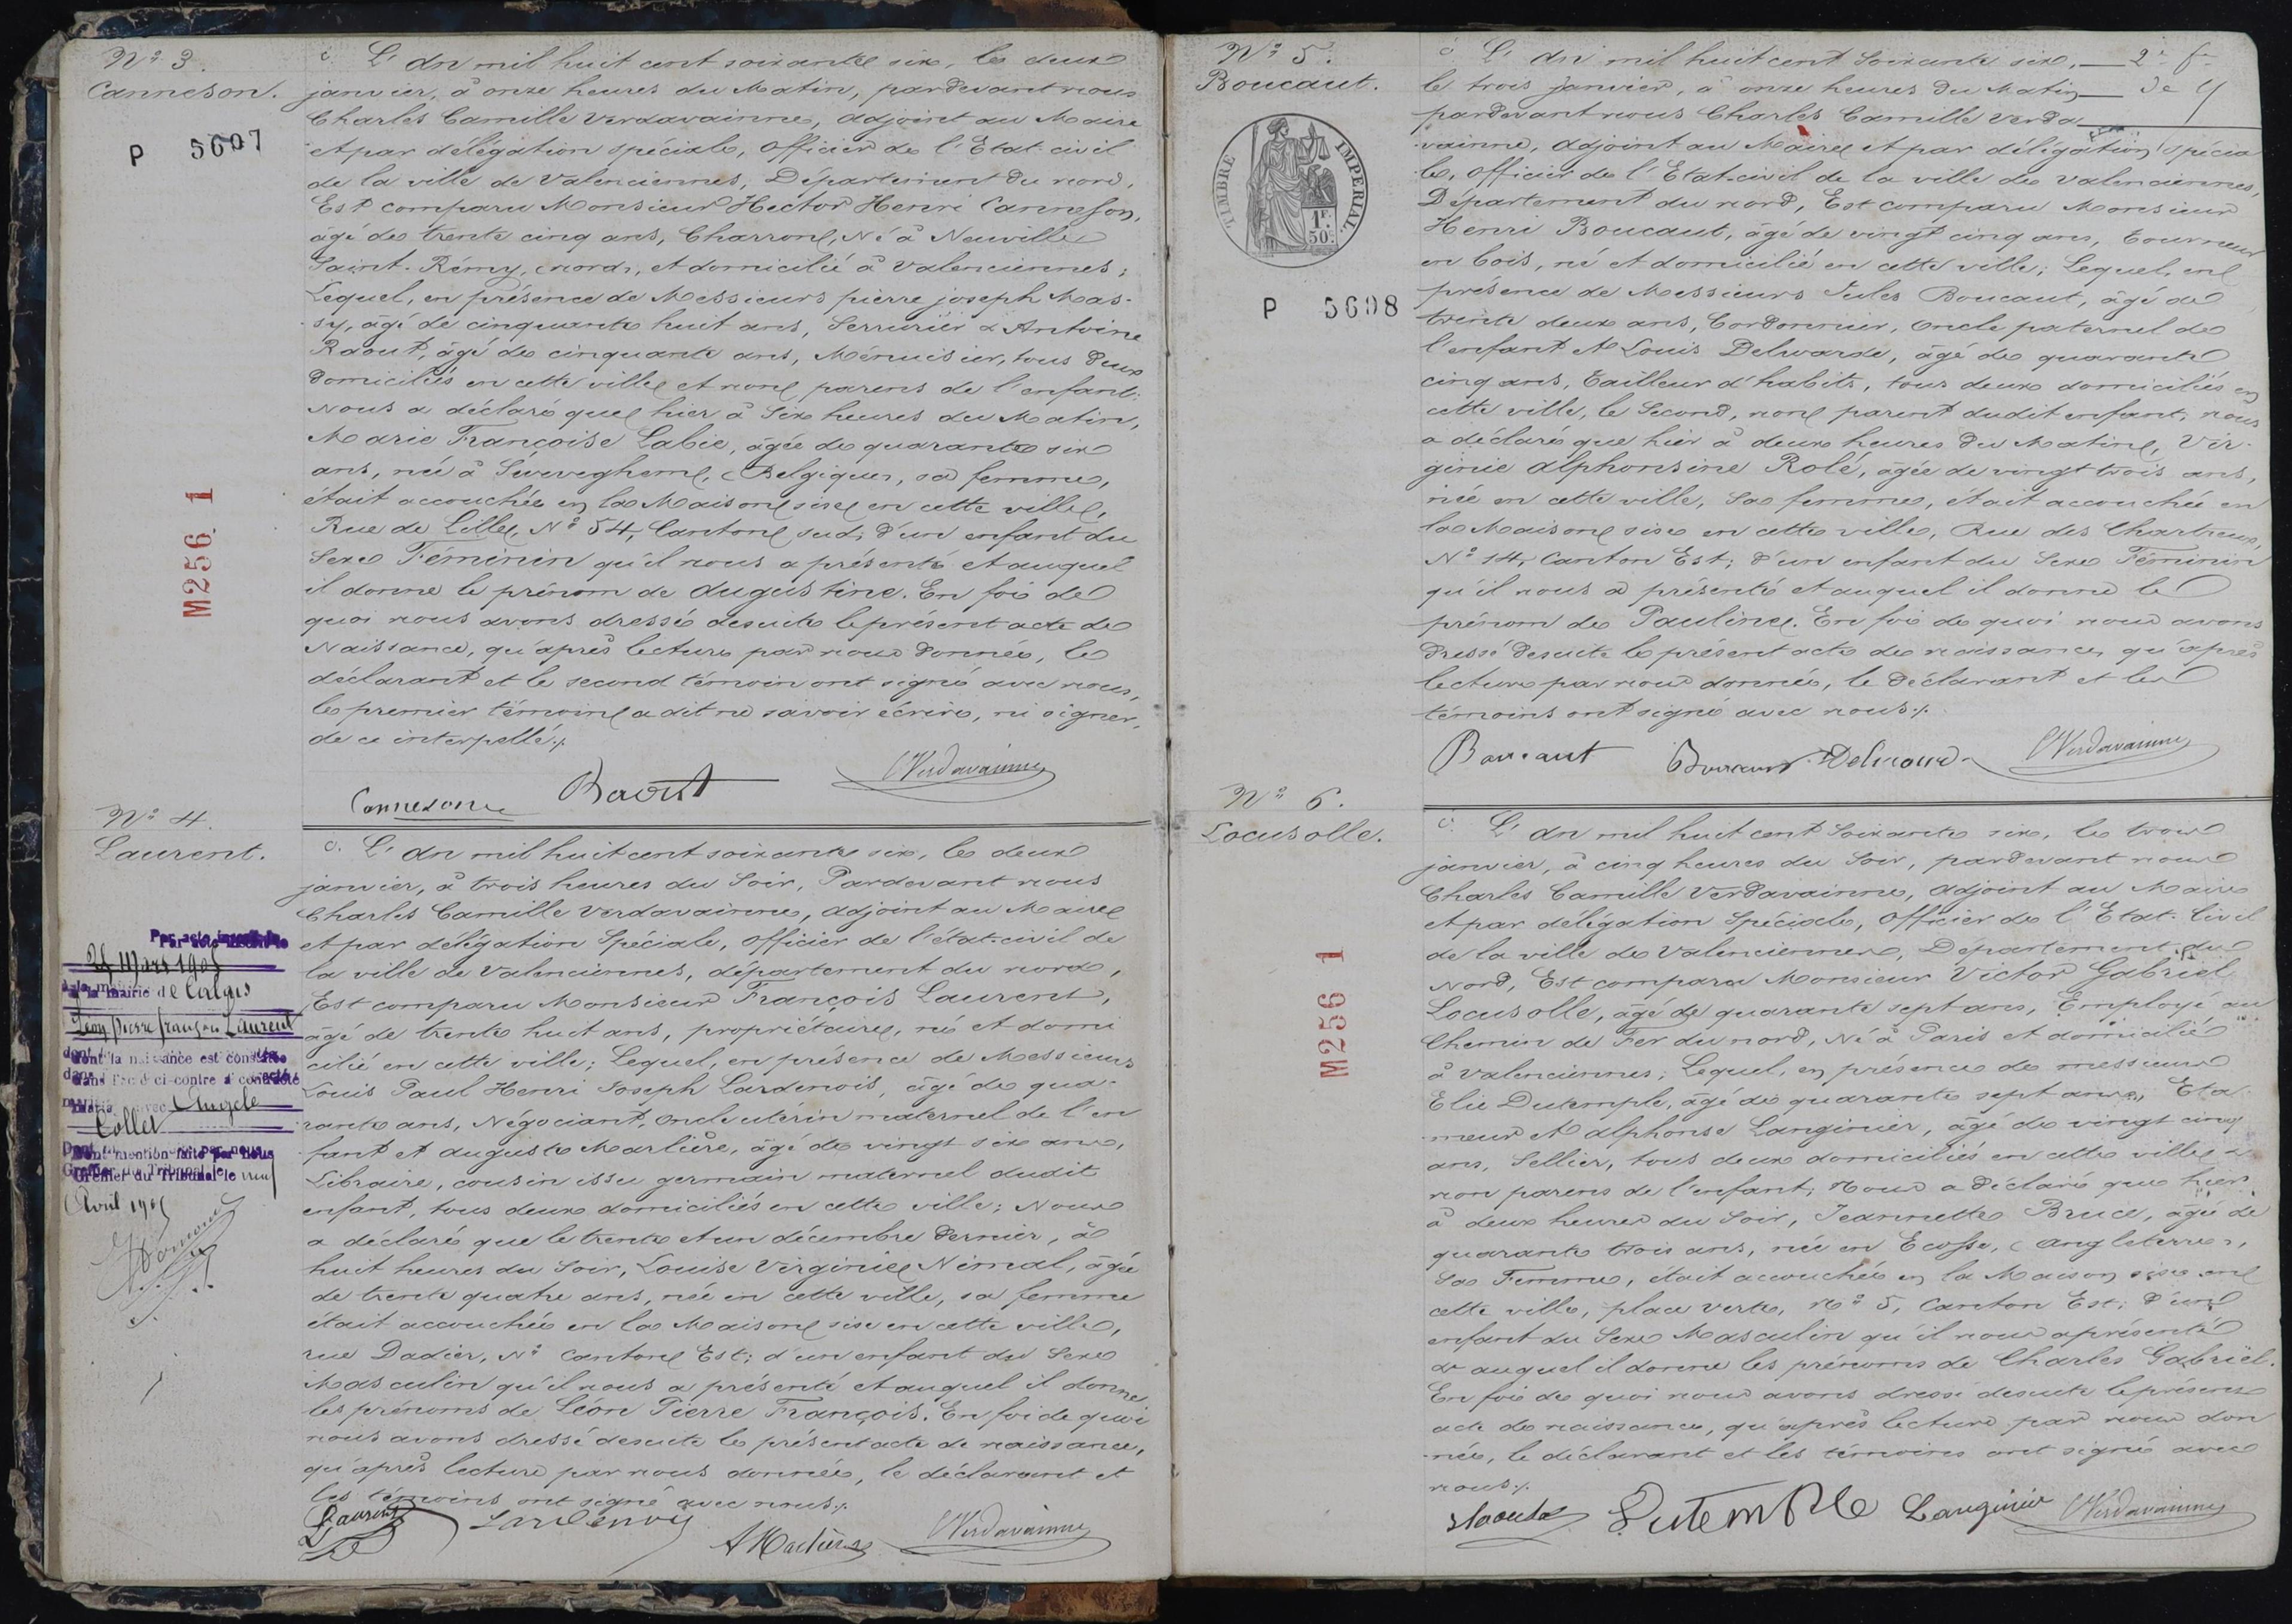 Nº 3.
Canneson.
P 5607
M256 1
c. L'An mil huit cent soixante six, le deux
janvier, à onze heures du Matin, pardevant nous
Charles Camille Verdavainne, adjoint au Maire
et par délégation spéciale, officier de l'Etat-civil
de la ville de Valenciennes, Département du nord,
Est comparu Monsieur Hector Henri Canneson,
âgé de trente cinq ans, Charron, Né à Neuville
Saint-Rémy, (nord), et domicilié à Valenciennes;
Lequel, en présence de Messieurs pierre joseph Mas-
sy, âgé de cinquante huit ans, Serrurier & Antoine
Raout, âgé de cinquante ans, Ménuisier, tous deux
domiciliés en cette ville et non parens de l'enfant:
Nous a déclaré que hier à Six heures du Matin,
Marie Françoise Labie, âgée de quarante six
ans, née à Séveveghem, (Belgique), sa femme,
était accouchée en la Maison sise en cette ville,
Rue de Lille, Nº 54, Canton sud; d'un enfant du
Sexe Féminin qu'il nous a présenté et auquel
il donne le prénom de Augustine. En foi de
quoi nous avons dressé desuite le présent acte de
Naissance, qu'après lecture par nous donnée, le
déclarant et le second témoin ont signé avec nous,
le premier témoin a dit ne savoir écrire, ni signer,
de ce interpellé ./.
Canneson Raout CVerdavainne
Nº 4.
Laurent.
Par acte inscrit le
25 Mars 1905
à la mairie de Calais
Léon pierre françois Laurent
dont la naissance est constatée
dans l'acte ci-contre a contracté
mariage avec Angèle
Collet
Dont mention faite par nous
Greffier du Tribunal le neuf
Avril 1905
c. L'An mil huit cent soixante six, le deux
janvier, à trois heures du Soir, Pardevant nous
Charles Camille Verdavainne, adjoint au Maire
et par délégation Spéciale, officier de l'état-civil de
la ville de Valenciennes, département du nord,
Est comparu Monsieur François Laurent,
âgé de trente huit ans, propriétaire, né et domi
cilié en cette ville; Lequel, en présence de Messieurs
Louis Paul Henri Joseph Lardenois, âgé de qua-
rante ans, Négociant, oncle utérin maternel de l'en
fant et auguste Marlière, âgé de vingt six ans,
Libraire, cousin issu germain maternel dudit
enfant, tous deux domiciliés en cette ville; Nous
a déclaré que le trente et un décembre dernier, à
huit heures du Soir, Louise Virginie Nimal, âgée
de trente quatre ans, née en cette ville, sa femme
était accouchée en la Maison sise en cette ville,
rue Dadier, Nº Canton Est; d'un enfant du Sexe
Masculin qu'il nous a présenté et auquel il donne
les prénoms de Léon Pierre François. En foi de quoi
nous avons dressé desuite le présent acte de naissance,
qu'après lecture par nous donnée, le déclarant et
les témoins ont signé avec nous ./.
Laurent Lardenois AMarlière CVerdavainne
Nº 5.
Boucaut.
TIMBRE IMPÉRIAL
1F.
50C.
P 5608
c. L'An mil huit cent Soixante six, — 2e f.
le trois janvier, à onze heures du Matin —
pardevant nous Charles Camille Verda
vainne, adjoint au Maire et par délégation spécia
le, officier de l'Etat-civil de la ville de Valenciennes,
Département du nord, Est comparu Monsieur
Henri Boucaut, âgé de vingt cinq ans, tourneur
en bois, né et domicilié en cette ville; Lequel, en
présence de Messieurs Jules Boucaut, âgé de
trente deux ans, Cordonnier, oncle paternel de
l'enfant et Louis Delwarde, âgé de quarante
cinq ans, tailleur d'habits, tous deux domiciliés en
cette ville, le Second, non parent dudit enfant, nous
a déclaré que hier à deux heures du Matin, Vir-
ginie Alphonsine Rolé, âgée de vingt trois ans,
née en cette ville, Sa femme, était accouchée en
la Maison sise en cette ville, Rue des Chartreux,
Nº 14, Canton Est; d'un enfant du Sexe Féminin
qu'il nous a présenté et auquel il donne le
prénom de Pauline. En foi de quoi nous avons
dressé desuite le présent acte de naissance, qu'après
lecture par nous donnée, le déclarant et les
témoins ont signé avec nous ./.
Boucaut Boucaut Delwarde CVerdavainne
Nº 6.
Locusolle.
M256 1
c. L'An mil huit cent Soixante six, le trois
janvier, à cinq heures du Soir, pardevant nous
Charles Camille Verdavainne, adjoint au Maire
et par délégation Spéciale, Officier de l'Etat-Civil
de la ville de Valenciennes, Département du
Nord, Est comparu Monsieur Victor Gabriel
Locusolle, âgé de quarante sept ans, Employé au
Chemin de Fer du nord, Né à Paris et domicilié
à Valenciennes; Lequel, en présence de messieurs
Elie Dutemple, âgé de quarante sept ans, Eta-
meur et alphonse Langinier, âgé de vingt cinq
ans, Sellier, tous deux domiciliés en cette ville &
non parens de l'enfant; Nous a déclaré que hier
à deux heures du Soir, Jeannette Bruce, âgée de
quarante trois ans, née en Ecosse, (angleterre),
Sa Femme, était accouchée en la Maison sise en
cette ville, place verte, Nº 5, Canton Est; d'un
enfant du Sexe Masculin qu'il nous a présenté
& auquel il donne les prénoms de Charles Gabriel.
En foi de quoi nous avons dressé desuite le présent
acte de naissance, qu'après lecture par nous don
née, le déclarant et les témoins ont signé avec
nous ./.
Dutemple Langinier CVerdavainne